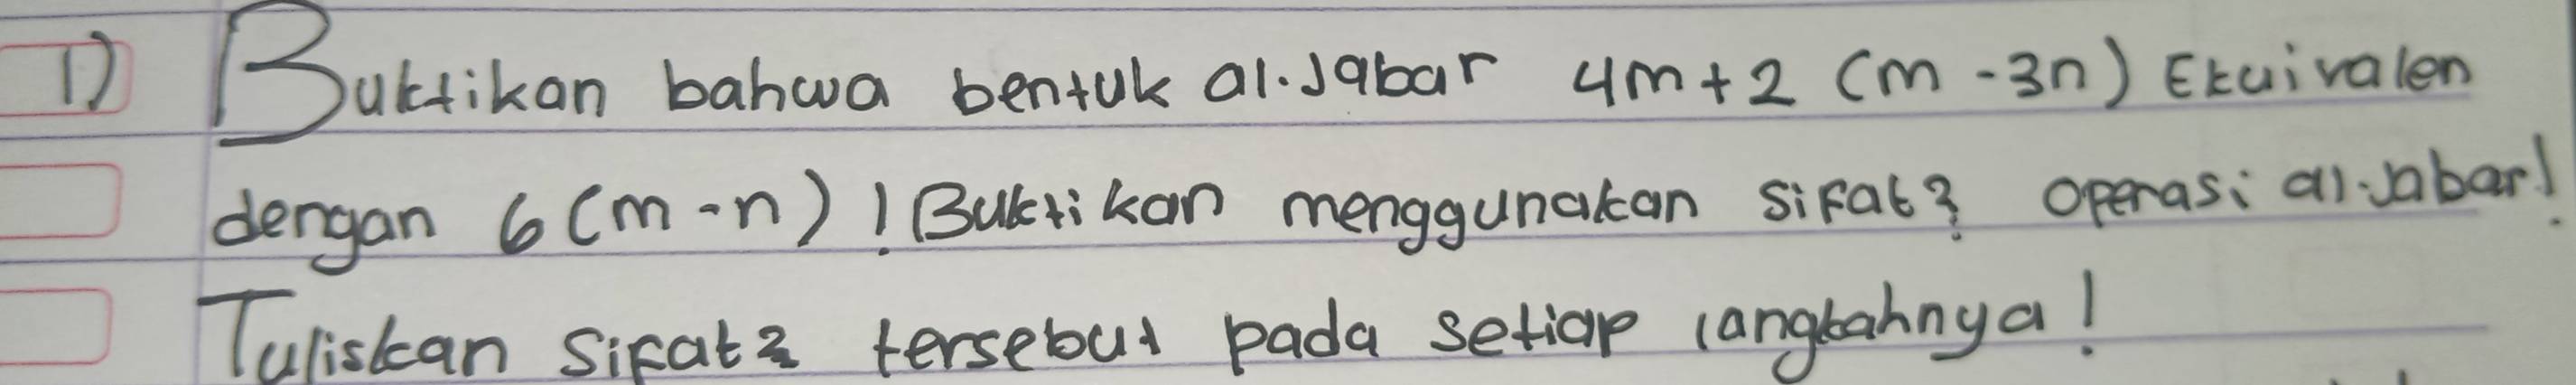 1) Buktikan bahwa bentuk al.Jabar 4m + 2 (m - 3n) Ekuivalen
dengan 6 (m - n) ! Buktikan menggunakan sifat2 operasi al.Jabar!
Tuliskan sifat2 tersebut pada setiap langkahnya!